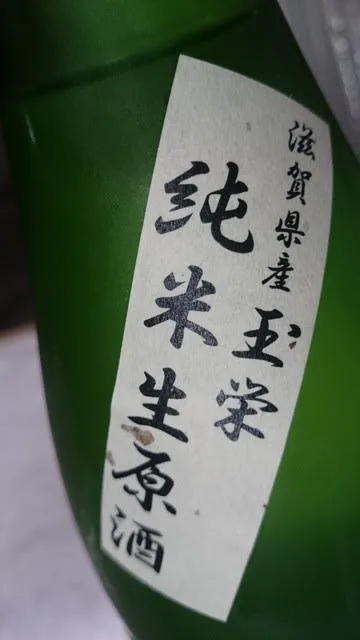 滋賀県産玉栄
純米生原酒